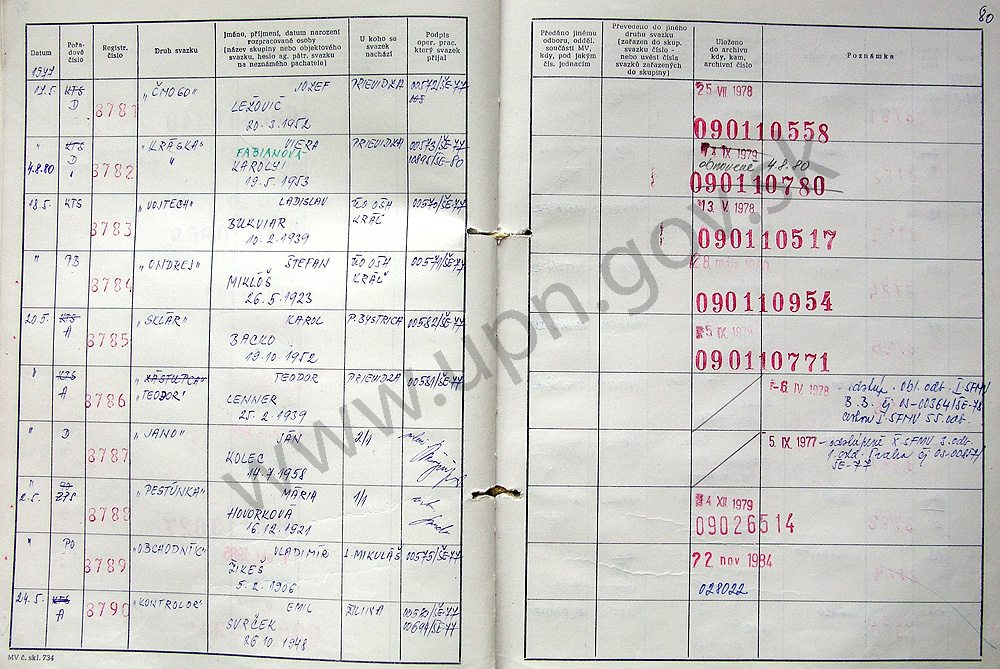 80
Datum
Pořadové číslo
Registr. číslo
Druh svazku
Jméno, příjmení, datum narození rozpracované osoby (název skupiny nebo objektového svazku, heslo sg. pátr. svazku na neznámého pachatele)
U koho se svazek nachází
Podpis oper. prac. který svazek přijal
Předáno jinému odboru, odděl. součásti MV, kdy, pod jakým čís. jednacím
Převedeno do jiného druhu svazku (zařazen do skup. svazku číslo - nebo uvést čísla svazků zařazených do skupiny)
Uloženo do archivu kdy, kam, archivní číslo
Poznámka
1977
17.5. KTS D 8781 „ČMOGO" JOZEF PRIEVIDZA 00572/ŠE-77
LEŽOVIČ
20.3.1952
25 VII 1978
090110558
" KTS D 8782 „KRÁSKA" VIERA PRIEVIDZA 00573/ŠE-77
4.8.80 " FABIANOVÁ 00895/ŠE-80
KAROLYI
19.5.1953
14 IX 1979
obnovené 4.8.80
090110780
18.5. KTS 8783 „VOJTECH" LADISLAV 00570/ŠE-77
BUKVIAR KRÁĽ
10.2.1939
13. V. 1978
090110517
" 8784 „ONDREJ" ŠTEFAN 00571/ŠE-77
MIKLÓŠ KRÁĽ
26.5.1923
28
090110954
20.5. KTS A 8785 „SKLÁR" KAROL P. BYSTRICA 00582/ŠE-77
BACKO
19.10.1952
5 IX 1979
090110771
" KTS A 8786 „ZÁSTUPCA" TEODOR PRIEVIDZA 00581/ŠE-77
„TEODOR" LENNER
25.2.1939
-6. IV. 1978 - odstúp. obl. odt. I SFMV
B.B. čj OS-00364/ŠE-78
I. SFMV 55. odt.
" D 8787 „JANO" JÁN 2/1
KOLEC
14.7.1958
5. IX. 1977 - odstúpené X. SFMV 3. odt.
1. odd. Praha čj OS-00857/
ŠE-77
2.5. 8788 „PESTÚNKA" MÁRIA 1/1
HOVORKOVÁ
16.12.1921
14 XII 1979
09026514
" PO 8789 „OBCHODNÍK" VLADIMÍR L. MIKULÁŠ 00575/ŠE-77
ŽIKEŠ
5.2.1906
22 nov 1984
028022
24.5. KTS A 8790 „KONTROLOR" EMIL ŽILINA 00580/ŠE-77
SVRČEK 00694/ŠE-77
26.10.1948
MV č. skl. 734
www.upn.gov.sk